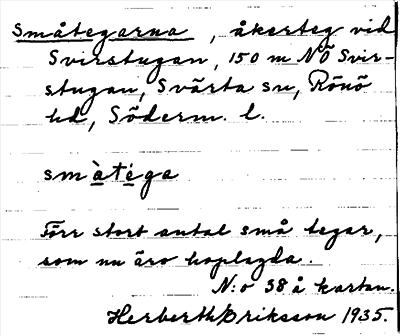 Småtegarna, åkerteg vid
Svirstugan, 150 m NÖ Svir-
stugan, Svärta sn, Rönö
hd, Söderm. l.
smàtéga
Förr stort antal små tegar,
som nu äro hoplagda.
N:o 38 å kartan.
Herberth Eriksson 1935.